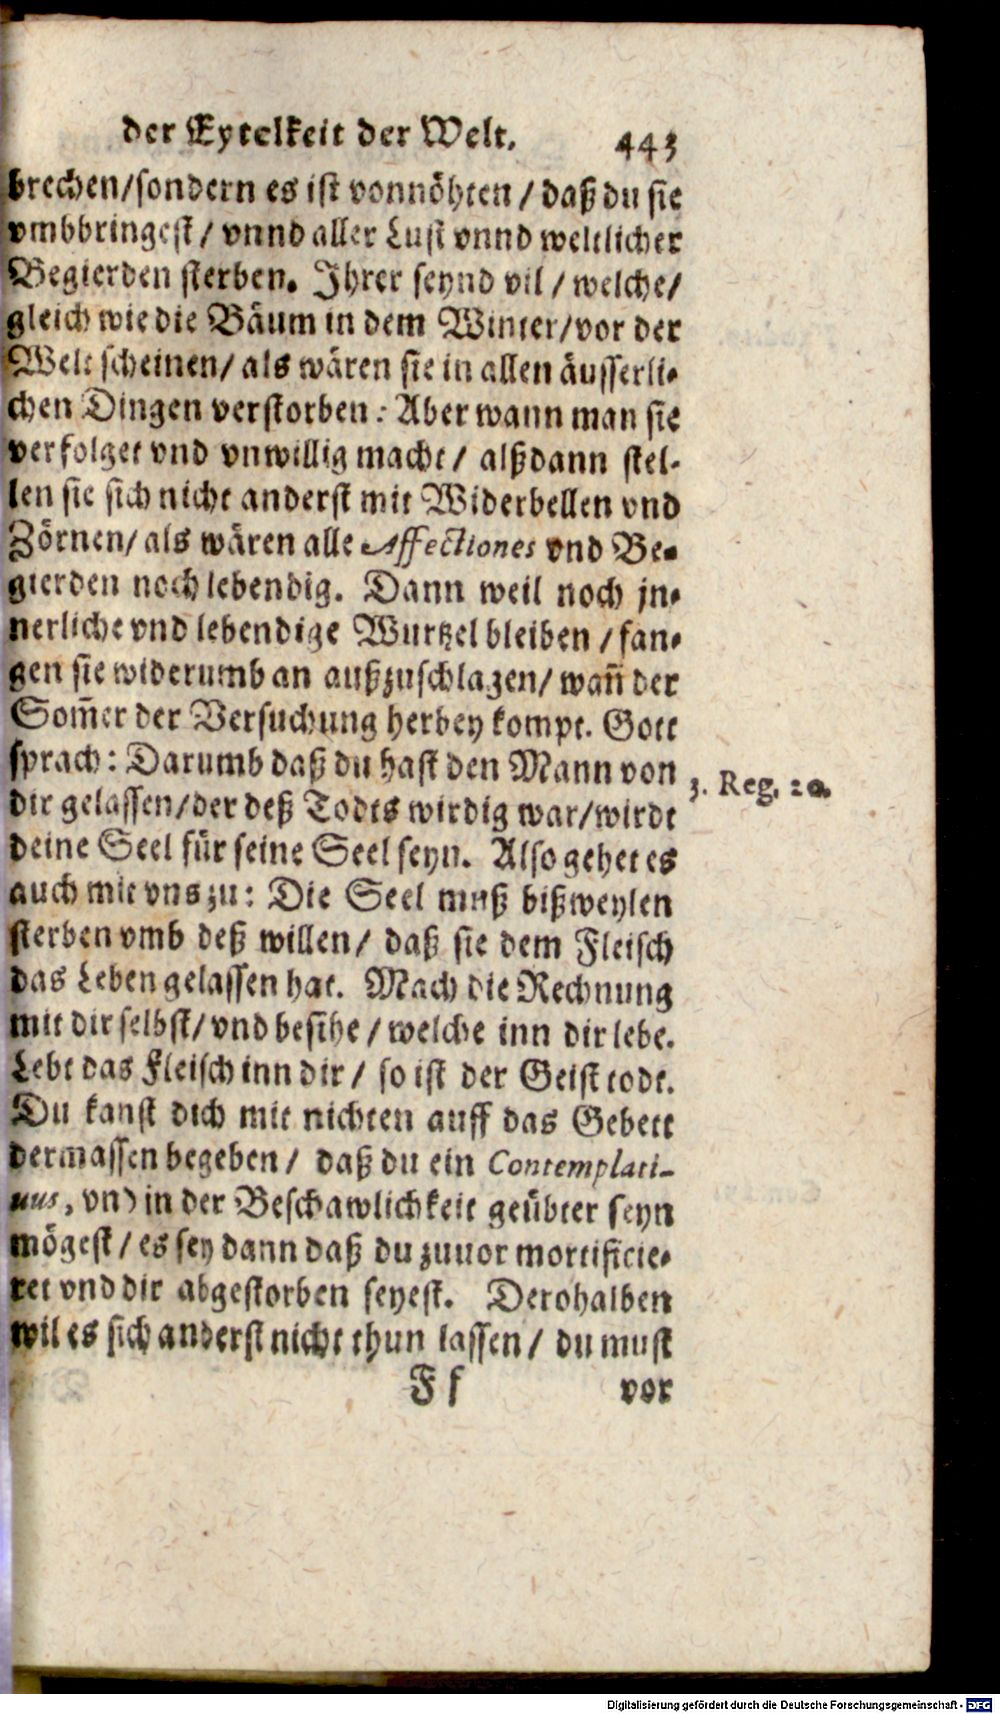 der Eytelkeit der Welt. 443
brechen/sondern es ist vonnöhten / daß du sie
vmbbringest / vnnd aller Lust vnnd weltlicher
Begierden sterben. Ihrer seynd vil / welche/
gleich wie die Bäum in dem Winter/vor der
Welt scheinen/ als wären sie in allen äusserli-
chen Dingen verstorben: Aber wann man sie
verfolget vnd vnwillig macht / alßdann stel-
len sie sich nicht anderst mit Widerbellen vnd
Zörnen/ als wären alle Affectiones vnd Be-
gierden noch lebendig. Dann weil noch jn-
nerliche vnd lebendige Wurtzel bleiben / fan-
gen sie widerumb an außzuschlagen/ wañ der
Som̃er der Versuchung herbey kompt. Gott
sprach: Darumb daß du hast den Mann von
3. Reg. 20.
dir gelassen/der deß Todts wirdig war/wirdt
deine Seel für seine Seel seyn. Also gehet es
auch mit vns zu: Die Seel muß bißweylen
sterben vmb deß willen/ daß sie dem Fleisch
das Leben gelassen hat. Mach die Rechnung
mit dir selbst/ vnd besihe / welche inn dir lebe.
Lebt das Fleisch inn dir / so ist der Geist todt.
Du kanst dich mit nichten auff das Gebett
dermassen begeben / daß du ein Contemplati-
uus, vnd in der Beschawlichkeit geübter seyn
mögest / es sey dann daß du zuuor mortificie-
ret vnd dir abgestorben seyest. Derohalben
wil es sich anderst nicht thun lassen / du must
Ff vor
Digitalisierung gefördert durch die Deutsche Forschungsgemeinschaft - DFG